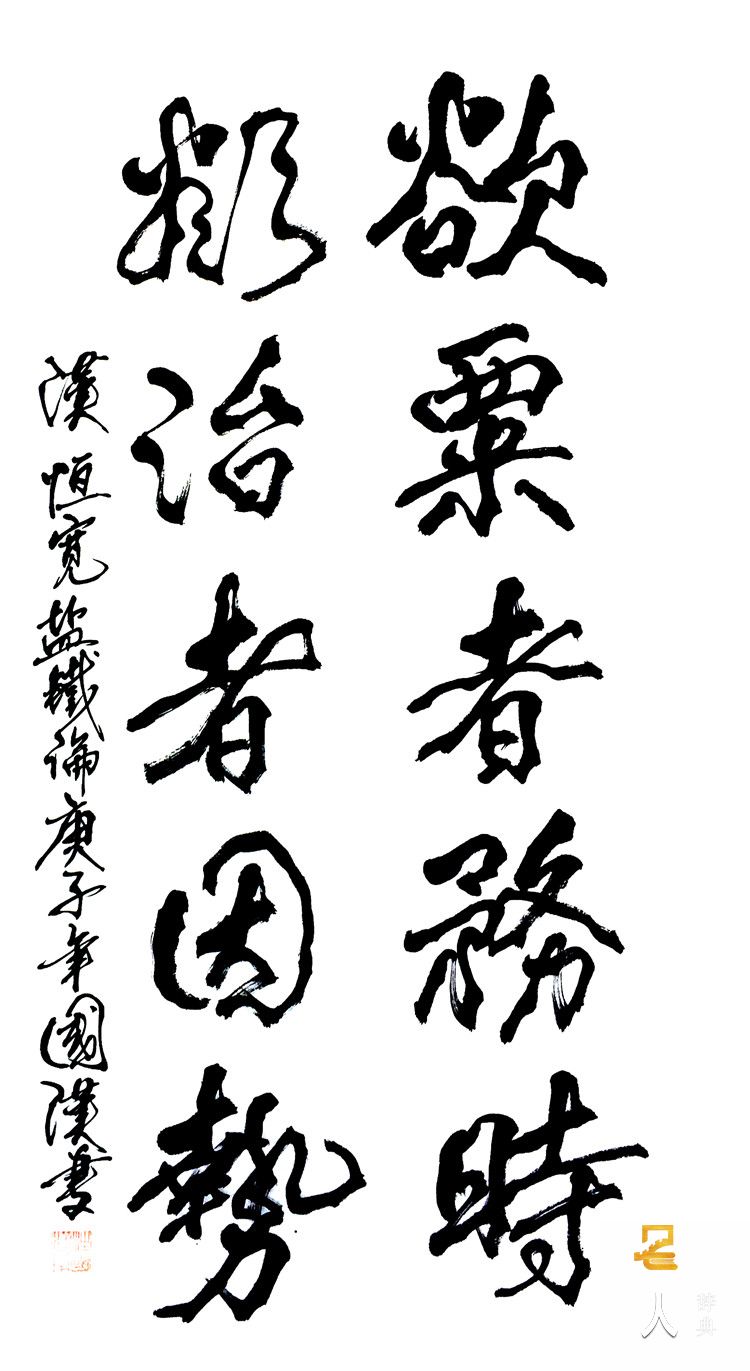 欲粟者務時
欲治者因勢
漢恒寬盐鐵論庚子年國漢書
名人辞典